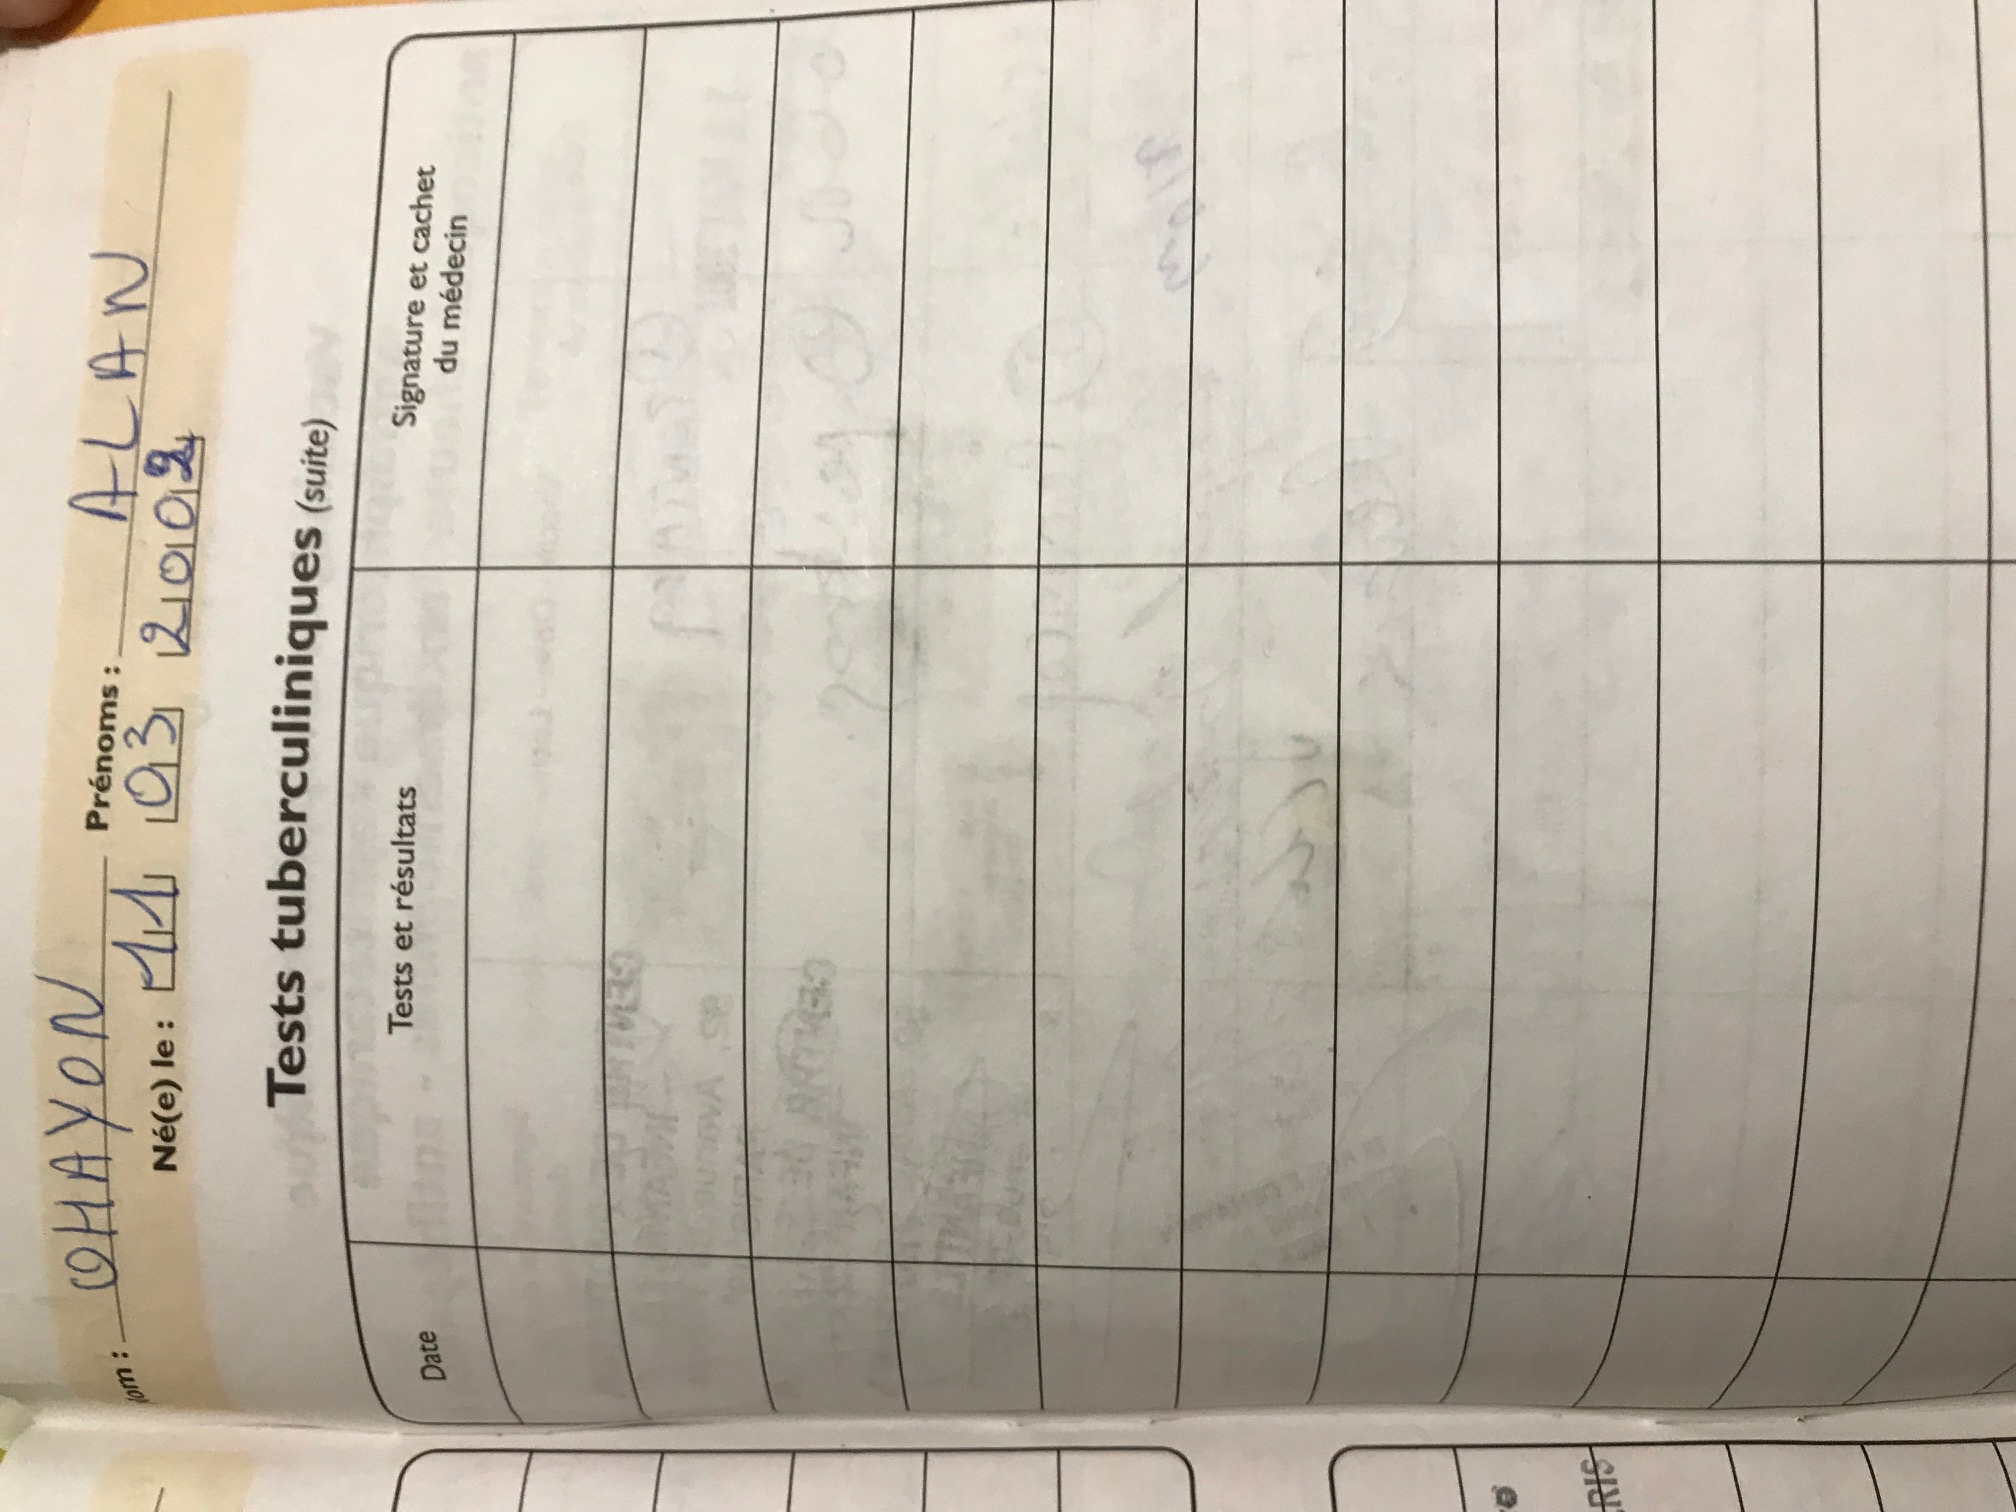 Nom : OHAYON Prénoms : ALAN
Né(e) le : 11 03 2002
Tests tuberculiniques (suite)
Date
Tests et résultats
Signature et cachet
du médecin